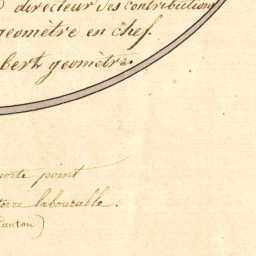 directeur des contributions
géomètre en chef.
bert géomètre.
porte point
terre labourable.
Canton)